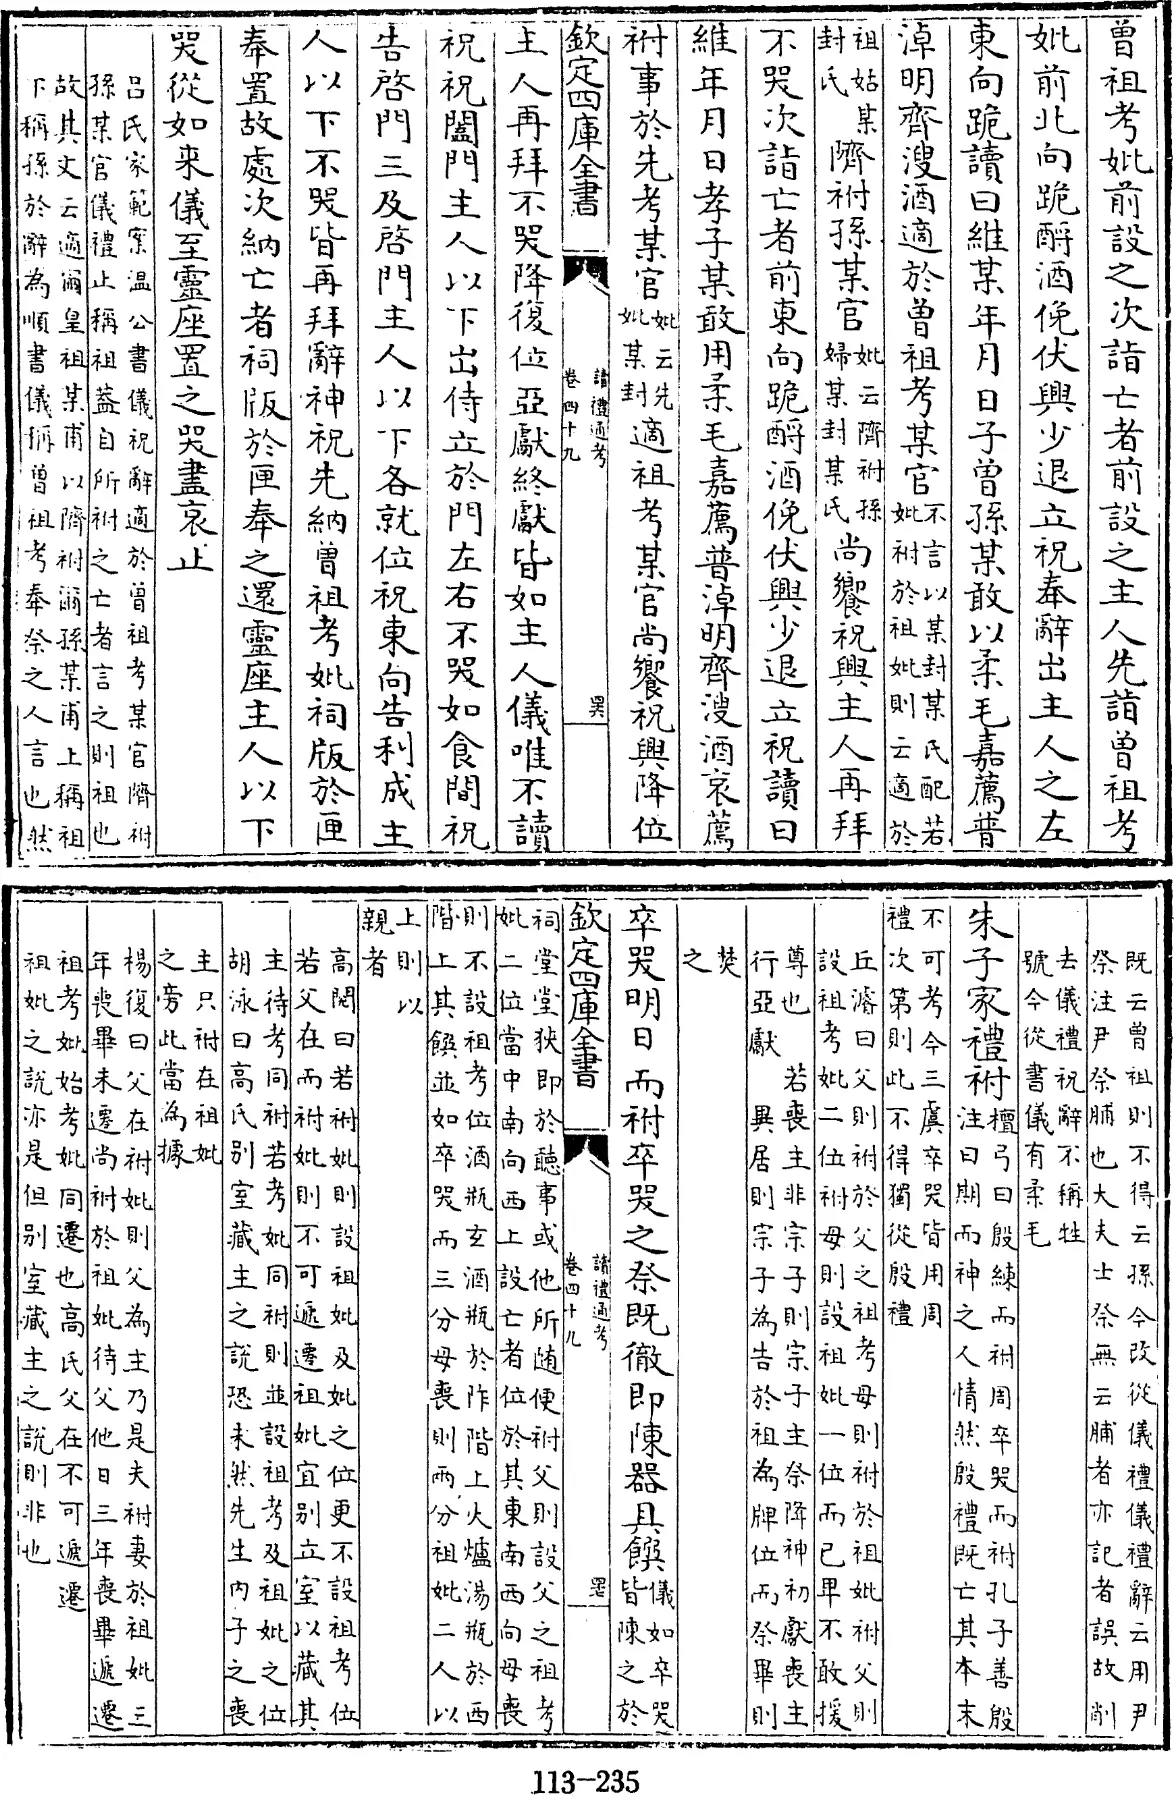 曾祖考妣前設之次詣亡者前設之主人先詣曾祖考
妣前北向跪酹酒俛伏興少退立祝奉辭出主人之左
東向跪讀曰維某年月日子曾孫某敢以柔毛嘉薦普
淖明齊溲酒適於曾祖考某官不言以某封某氏配若妣祔於祖妣則云適於
祖姑某封氏隮祔孫某官妣云隮祔孫婦某封某氏尚饗祝興主人再拜
不哭次詣亡者前東向跪酹酒俛伏興少退立祝讀曰
維年月日孝子某敢用柔毛嘉薦普淖明齊溲酒哀薦
祔事於先考某官妣云先妣某封適祖考某官尚饗祝興降位
欽定四庫全書
讀禮通考
卷四十九
主人再拜不哭降復位亞獻終獻皆如主人儀唯不讀
祝祝闔門主人以下出侍立於門左右不哭如食間祝
告啓門三及啓門主人以下各就位祝東向告利成主
人以下不哭皆再拜辭神祝先納曾祖考妣祠版於匣
奉置故處次納亡者祠版於匣奉之還靈座主人以下
哭從如来儀至靈座置之哭盡哀止
呂氏家範案溫公書儀祝辭適於曾祖考某官隮祔
孫某官儀禮止稱祖葢自所祔之亡者言之則祖也
故其文云適爾皇祖某甫以隮祔爾孫某甫上稱祖
下稱孫於辭為順書儀稱曾祖考奉祭之人言也然
既云曾祖則不得云孫今改從儀禮儀禮辭云用尹
祭注尹祭脯也大夫士祭無云脯者亦記者誤故削
去儀禮祝辭不稱牲
號今從書儀有柔毛
朱子家禮祔檀弓曰殷練而祔周卒哭而祔孔子善殷注曰期而神之人情然殷禮既亡其本末
不可考今三虞卒哭皆用周
禮次第則此不得獨從殷禮
丘濬曰父則祔於父之祖考母則祔於祖妣祔父則
設祖考妣二位祔母則設祖妣一位而已卑不敢援
尊也　若喪主非宗子則宗子主祭降神初獻喪主
行亞獻　異居則宗子為告於祖為牌位而祭畢則
焚
之
卒哭明日而祔卒哭之祭既徹即陳器具饌儀如卒哭皆陳之於
欽定四庫全書
讀禮通考
卷四十九
祠堂堂狹即於聽事或他所随便祔父則設父之祖考
妣二位當中南向西上設亡者位於其東南西向母喪
則不設祖考位酒瓶玄酒瓶於阼階上火爐湯瓶於西
階上其饌並如卒哭而三分母喪則兩分祖妣二人以
上則以
親者
高閌曰若祔妣則設祖妣及妣之位更不設祖考位
若父在而祔妣則不可遞遷祖妣宜别立室以藏其
主待考同祔若考妣同祔則並設祖考及祖妣之位
胡泳曰高氏别室藏主之說恐未然先生内子之喪
主只祔在祖妣
之旁此當為據
楊復曰父在祔妣則父為主乃是夫祔妻於祖妣三
年喪畢未遷尚祔於祖妣待父他日三年喪畢遞遷
祖考妣始考妣同遷也高氏父在不可遞遷
祖妣之說亦是但别室藏主之說則非也
113-235